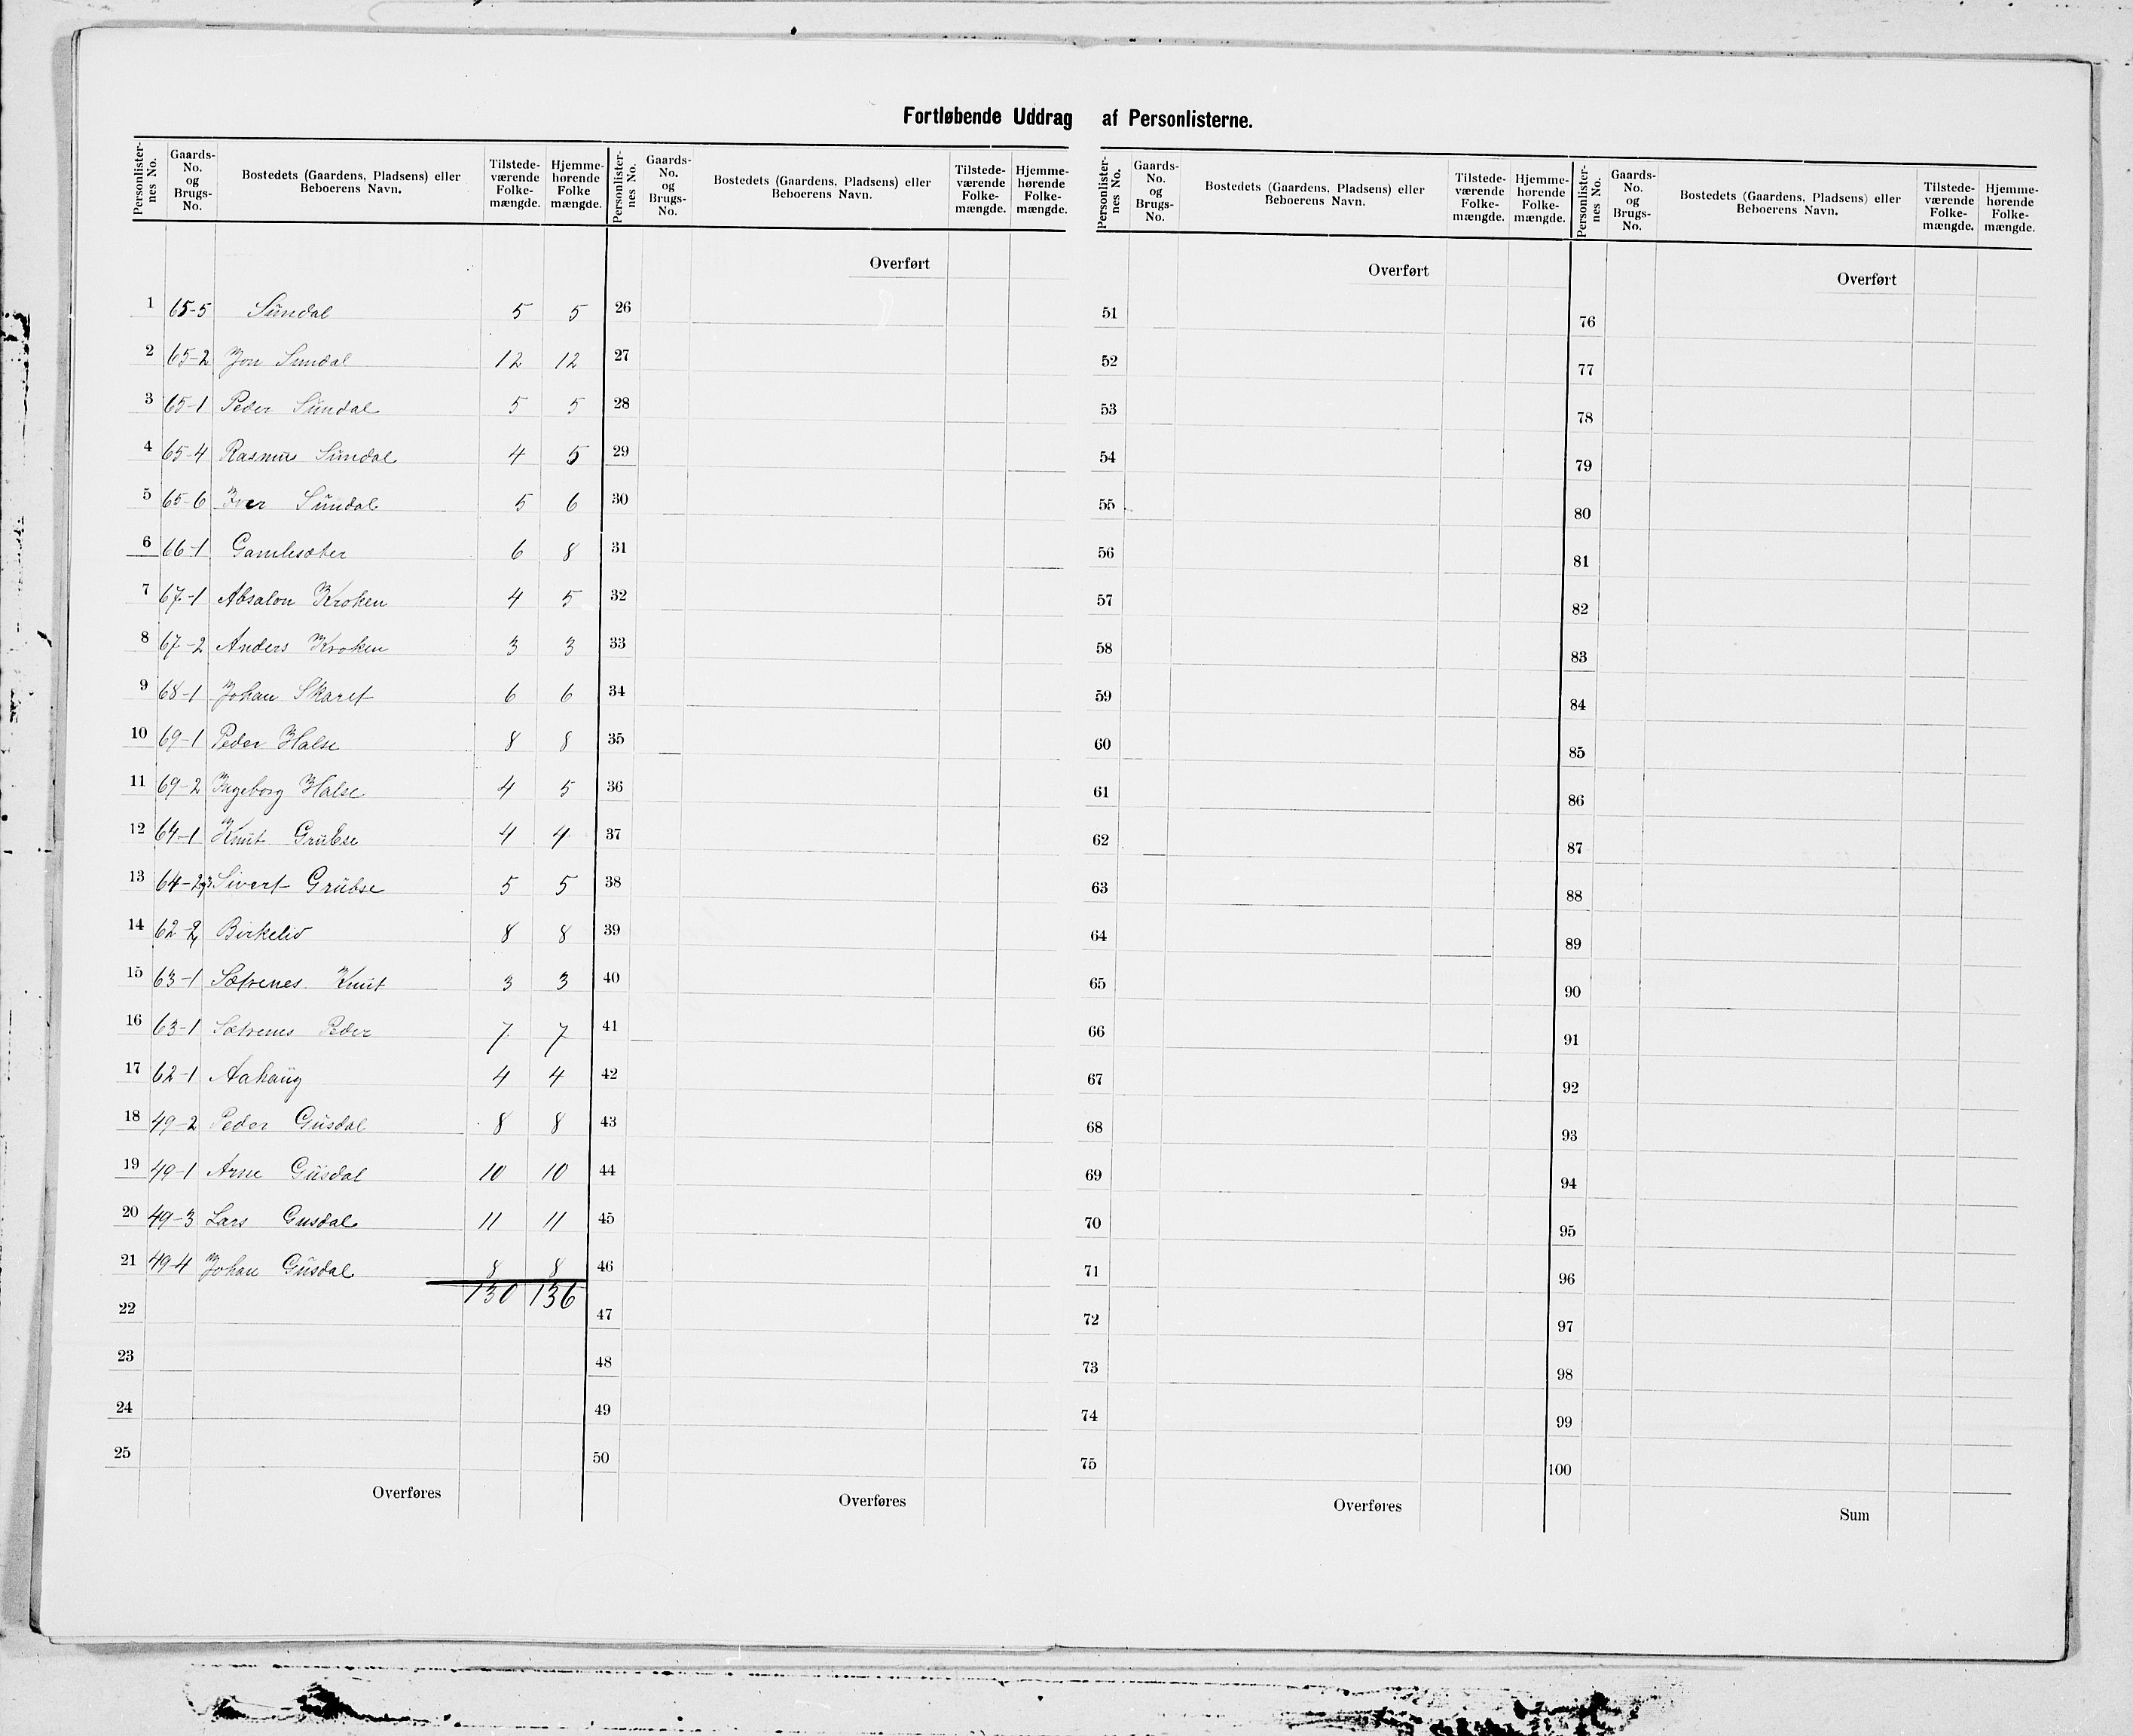 Fortløbende Uddrag af Personlisterne.
Personlister-nes No. Gaards-No. og Brugs-No. Bostedets (Gaardens, Pladsens) eller Beboerens Navn. Tilstede-værende Folke-mængde. Hjemme-hørende Folke mængde.
1 65-5 Sundal 5 5
2 65-2 Jon Sundal 12 12
3 65-1 Peder Sundal 5 5
4 65-4 Rasmus Sundal 4 5
5 65-6 Iver Sundal 5 6
6 66-1 Gamlesæter 6 8
7 67-1 Absalon Kroken 4 5
8 67-2 Anders Kroken 3 3
9 68-1 Johan Skaret 6 6
10 69-1 Peder Halse 8 8
11 69-2 Ingeborg Halse 4 5
12 64-1 Knut Grubse 4 4
13 64-2,3 Sivert Grubse 5 5
14 62-2 Birkelid 8 8
15 63-1 Sætrenes Knut 3 3
16 63-1 Sætrenes Peder 7 7
17 62-1 Aahaug 4 4
18 49-2 Peder Gusdal 8 8
19 49-1 Arne Gusdal 10 10
20 49-3 Lars Gusdal 11 11
21 49-4 Johan Gusdal 8 8
22 130 136
23
24
25
Overføres
Personlister-nes No. Gaards-No. og Brugs-No. Bostedets (Gaardens, Pladsens) eller Beboerens Navn. Tilstede-værende Folke-mængde. Hjemme-hørende Folke-mængde.
Overført
26
27
28
29
30
31
32
33
34
35
36
37
38
39
40
41
42
43
44
45
46
47
48
49
50
Overføres
Personlister-nes No. Gaards-No. og Brugs-No. Bostedets (Gaardens, Pladsens) eller Beboerens Navn. Tilstede-værende Folke-mængde. Hjemme-hørende Folke-mængde.
Overført
51
52
53
54
55
56
57
58
59
60
61
62
63
64
65
66
67
68
69
70
71
72
73
74
75
Overføres
Personlister-nes No. Gaards-No. og Brugs-No. Bostedets (Gaardens, Pladsens) eller Beboerens Navn. Tilstede-værende Folke-mængde. Hjemme-hørende Folke-mængde.
Overført
76
77
78
79
80
81
82
83
84
85
86
87
88
89
90
91
92
93
94
95
96
97
98
99
100
Sum